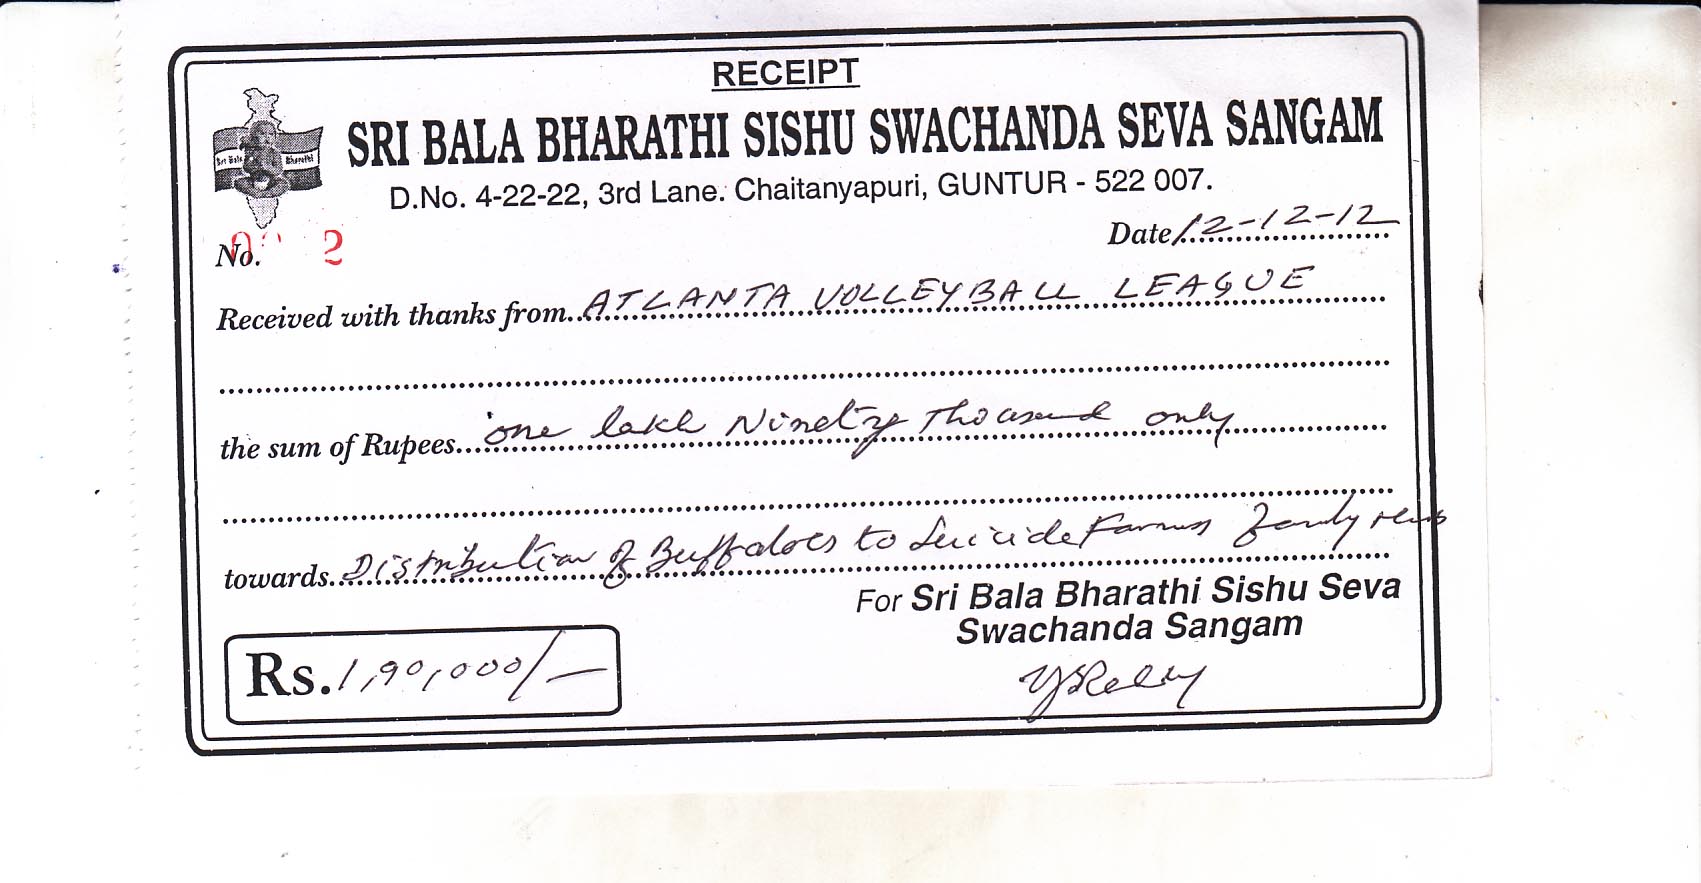 RECEIPT
SRI BALA BHARATHI SISHU SWACHANDA SEVA SANGAM
Sri Bala Bharathi
D.No. 4-22-22, 3rd Lane. Chaitanyapuri, GUNTUR - 522 007.
Date 12-12-12
No. 2
Received with thanks from ATLANTA VOLLEYBALL LEAGUE
the sum of Rupees one lakh Ninety Thousand only
towards Distribution of Buffaloes to Suicide Farmers family
For Sri Bala Bharathi Sishu Seva
Swachanda Sangam
Rs. 1,90,000/-